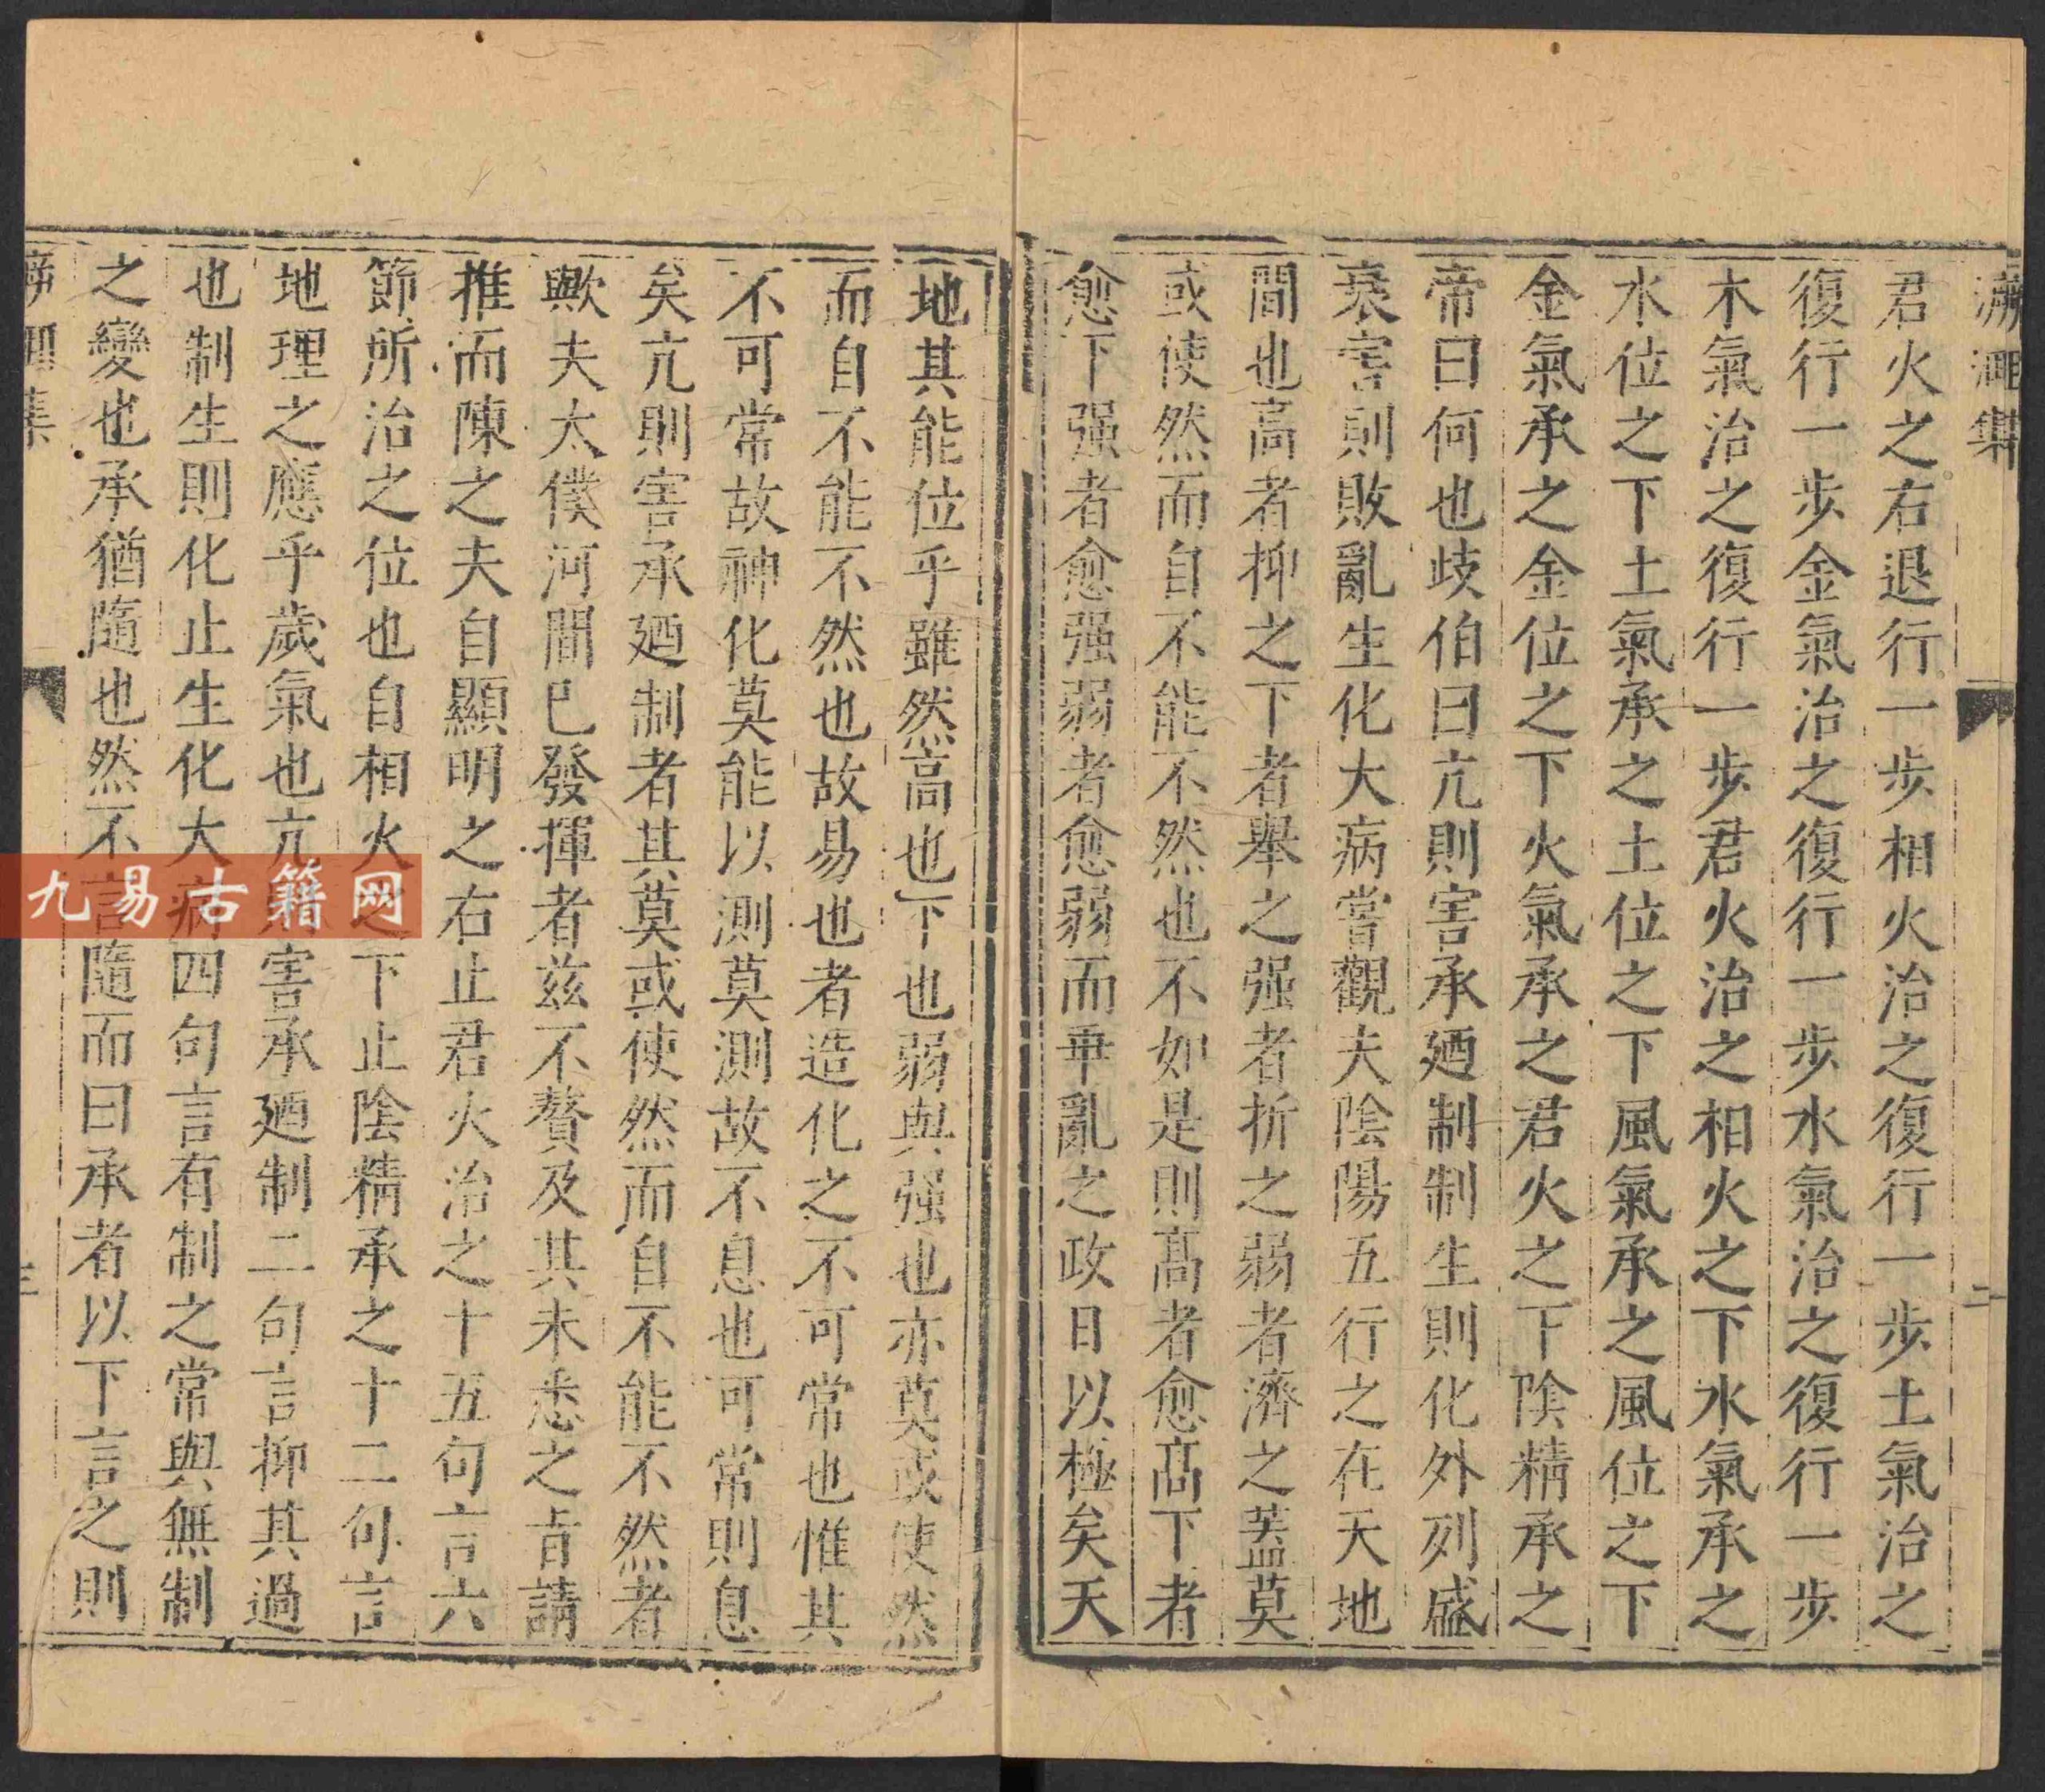 溯洄集
二
君火之右退行一步相火治之復行一步土氣治之
復行一步金氣治之復行一步水氣治之復行一步
木氣治之復行一步君火治之相火之下水氣承之
水位之下土氣承之土位之下風氣承之風位之下
金氣承之金位之下火氣承之君火之下陰精承之
帝曰何也歧伯曰亢則害承廼制制生則化外列盛
衰害則敗亂生化大病嘗觀夫陰陽五行之在天地
間也高者抑之下者舉之强者折之弱者濟之蓋莫
或使然而自不能不然也不如是則髙者愈髙下者
愈下强者愈强弱者愈弱而乖亂之政日以極矣天
地其能位乎雖然高也下也弱與强也亦莫或使然
而自不能不然也故易也者造化之不可常也惟其
不可常故神化莫能以測莫測故不息也可常則息
矣亢則害承廼制者其莫或使然而自不能不然者
歟夫太僕河間已發揮者兹不贅及其未悉之旨請
推而陳之夫自顯明之右止君火治之十五句言六
節所治之位也自相火之下止陰精承之十二句言
地理之應乎歲氣也亢則害承廼制二句言抑其過
也制生則化止生化大病四句言有制之常與無制
之變也承猶隨也然不言隨而曰承者以下言之則
三
九易古籍网